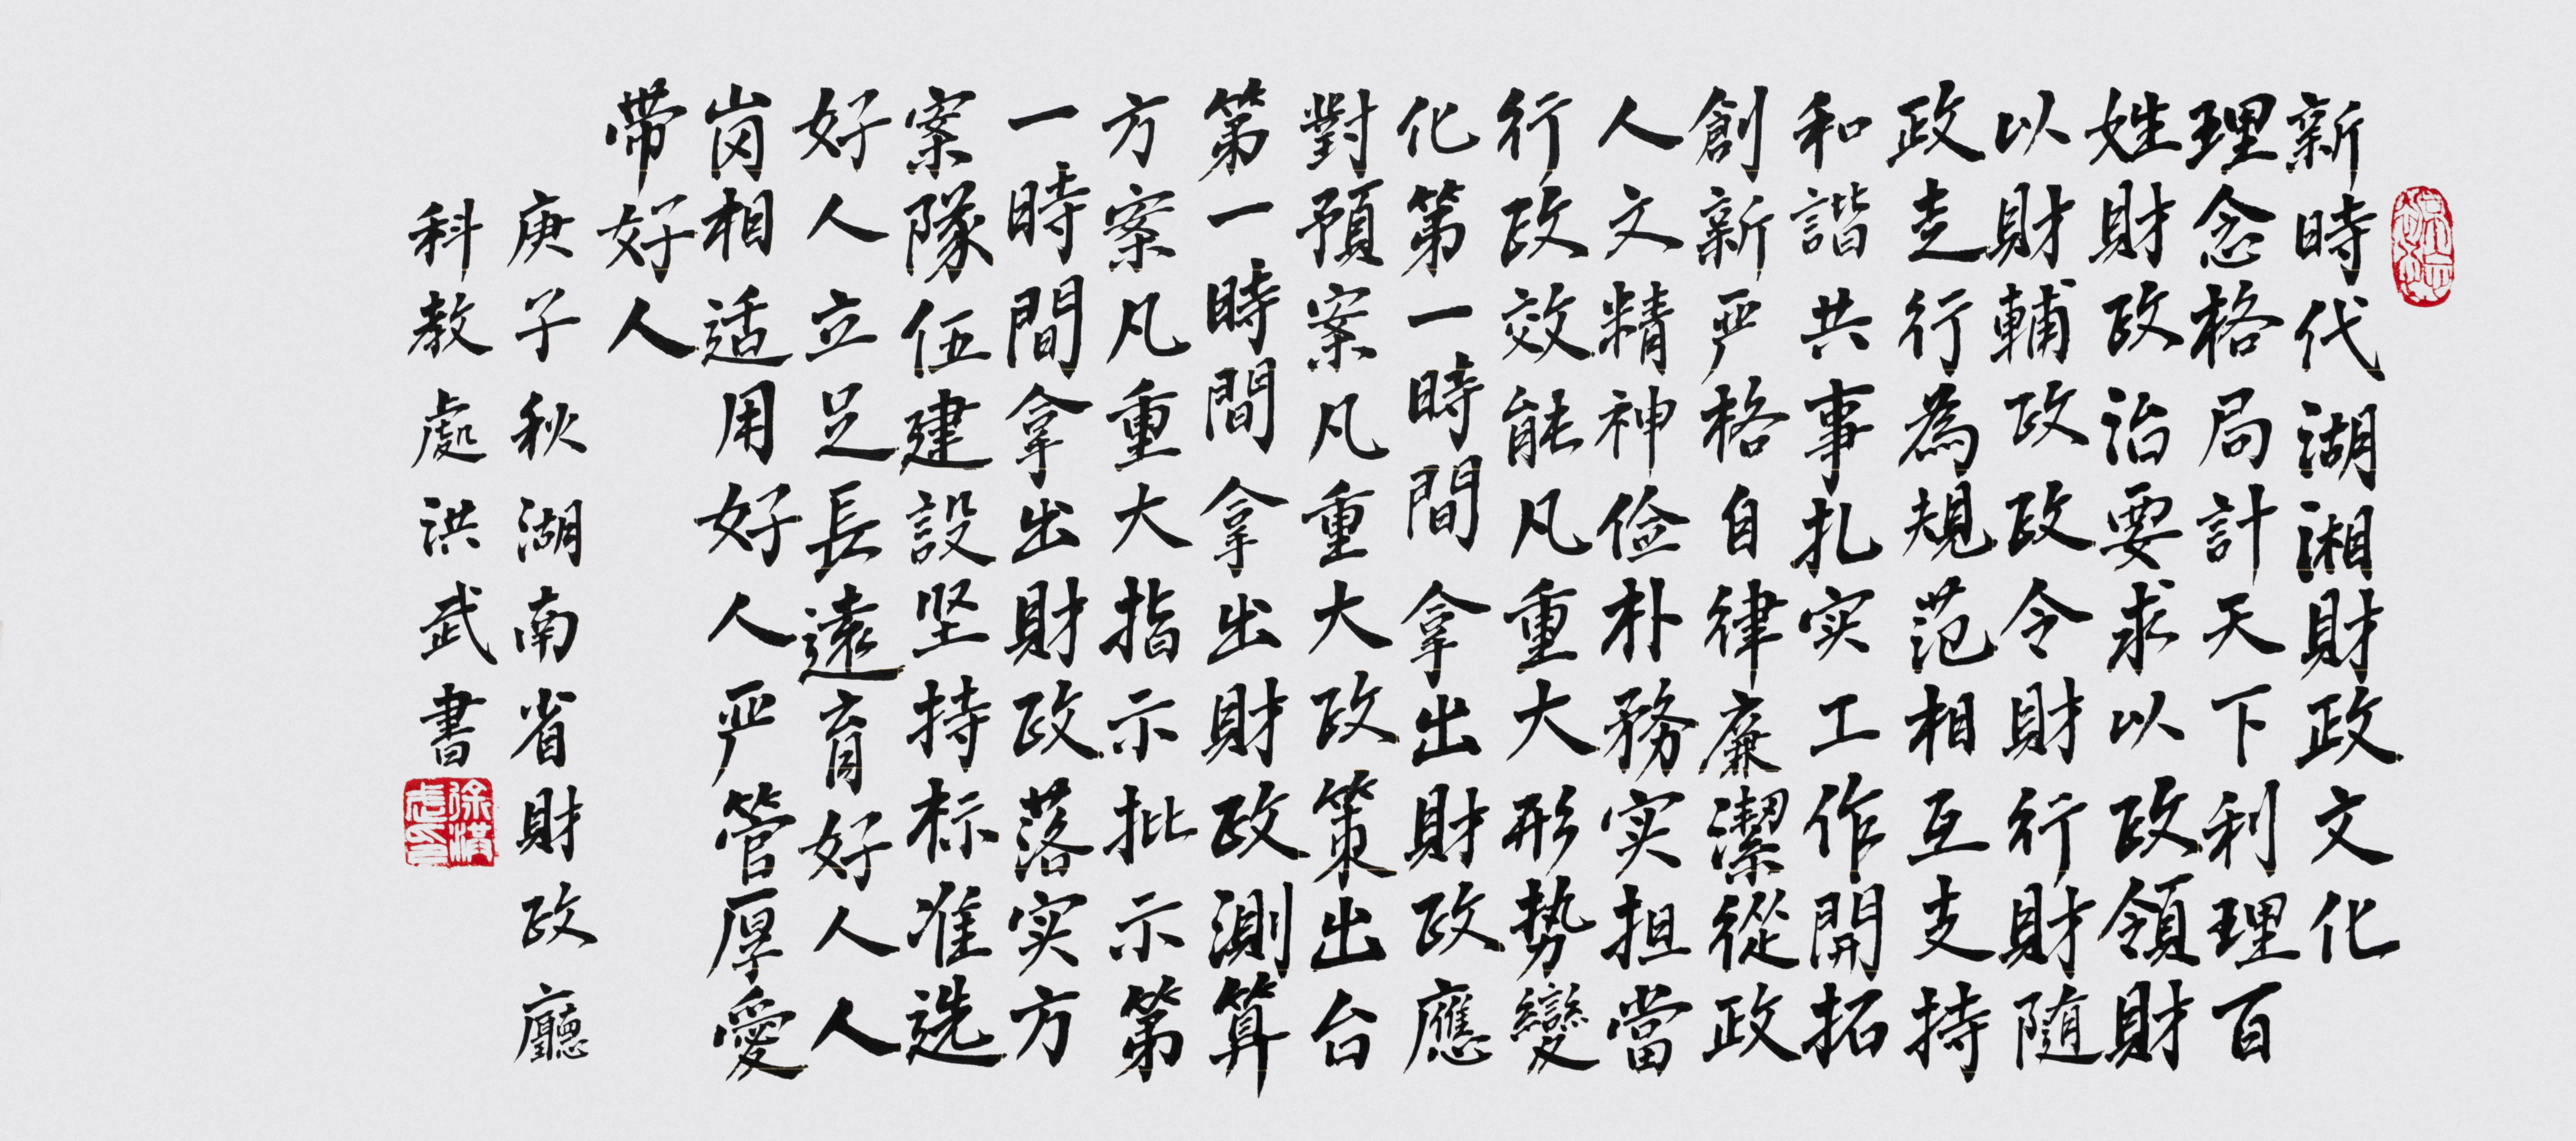 新時代湖湘財政文化
理念格局計天下利理百
姓財政治要求以政領財
以財輔政政令財行財随
政走行為規范相互支持
和諧共事扎实工作開拓
創新严格自律廉潔從政
人文精神俭朴務实担當
行政效能凡重大形势變
化第一時間拿出財政應
對預案凡重大政策出台
第一時間拿出財政測算
方案凡重大指示批示第
一時間拿出財政落实方
案隊伍建設坚持标准选
好人立足長遠育好人人
岗相适用好人严管厚愛
帶好人
庚子秋湖南省財政廳
科教處洪武書